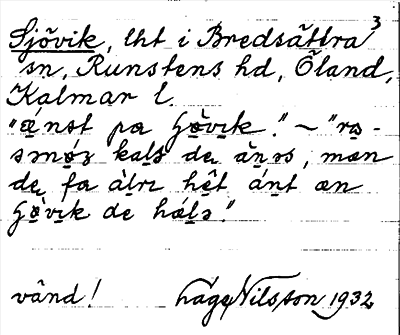 3
Sjövik, lht i Bredsättra
sn, Runstens hd, Öland,
Kalmar l.
"ǽnst pa ʃö̀vɩk." ~ "rɷ-
sənǿʒ kals de ä̀nəs, mæn
de fa àlrɩ hêt ánt æn
ʃö̀vɩk de hálə."
vänd! Håge Nilsson 1932